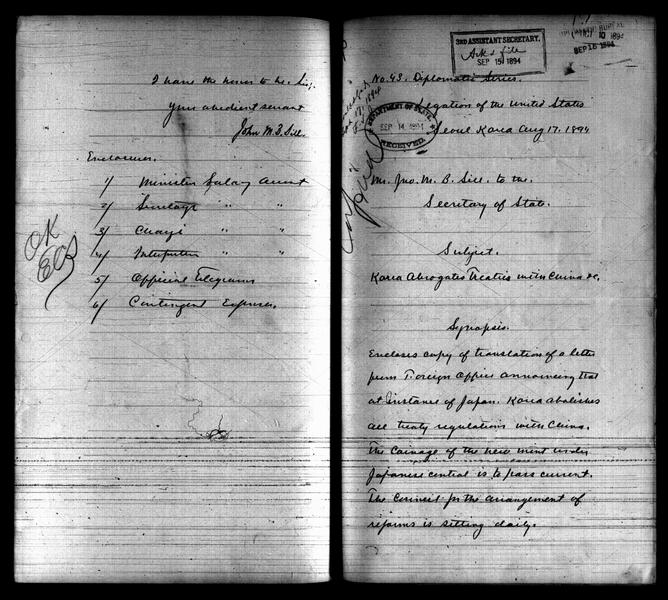 I have the honor to be, Sir,
Your obedient servant
John M. B. Sill.
Enclosures.
1/ Minister Salary Acount
2/ " "
3/ Chargé " "
4/ Interpreter " "
5/ Official Telegrams
6/ Contingent Expenses.
OK
3RD ASSISTANT SECRETARY,
Ack & file
SEP 15 1894
SEP 15 1894
No. 43. Diplomatic Series.
Legation of the United States
Seoul Korea Aug 17. 1894
DEPARTMENT OF STATE,
SEP 14 1894
RECEIVED
Mr. Jno. M. B. Sill. to the
Secretary of State.
Subject.
Korea Abrogates Treaties with China &c.
Synopsis.
Encloses copy of translation of a letter
from Foreign Office announcing that
at instance of Japan. Korea abolishes
all treaty regulations with China.
The Coinage of the new mint under
Japanese control is to pass current.
The Council for the arrangement of
reforms is sitting daily.